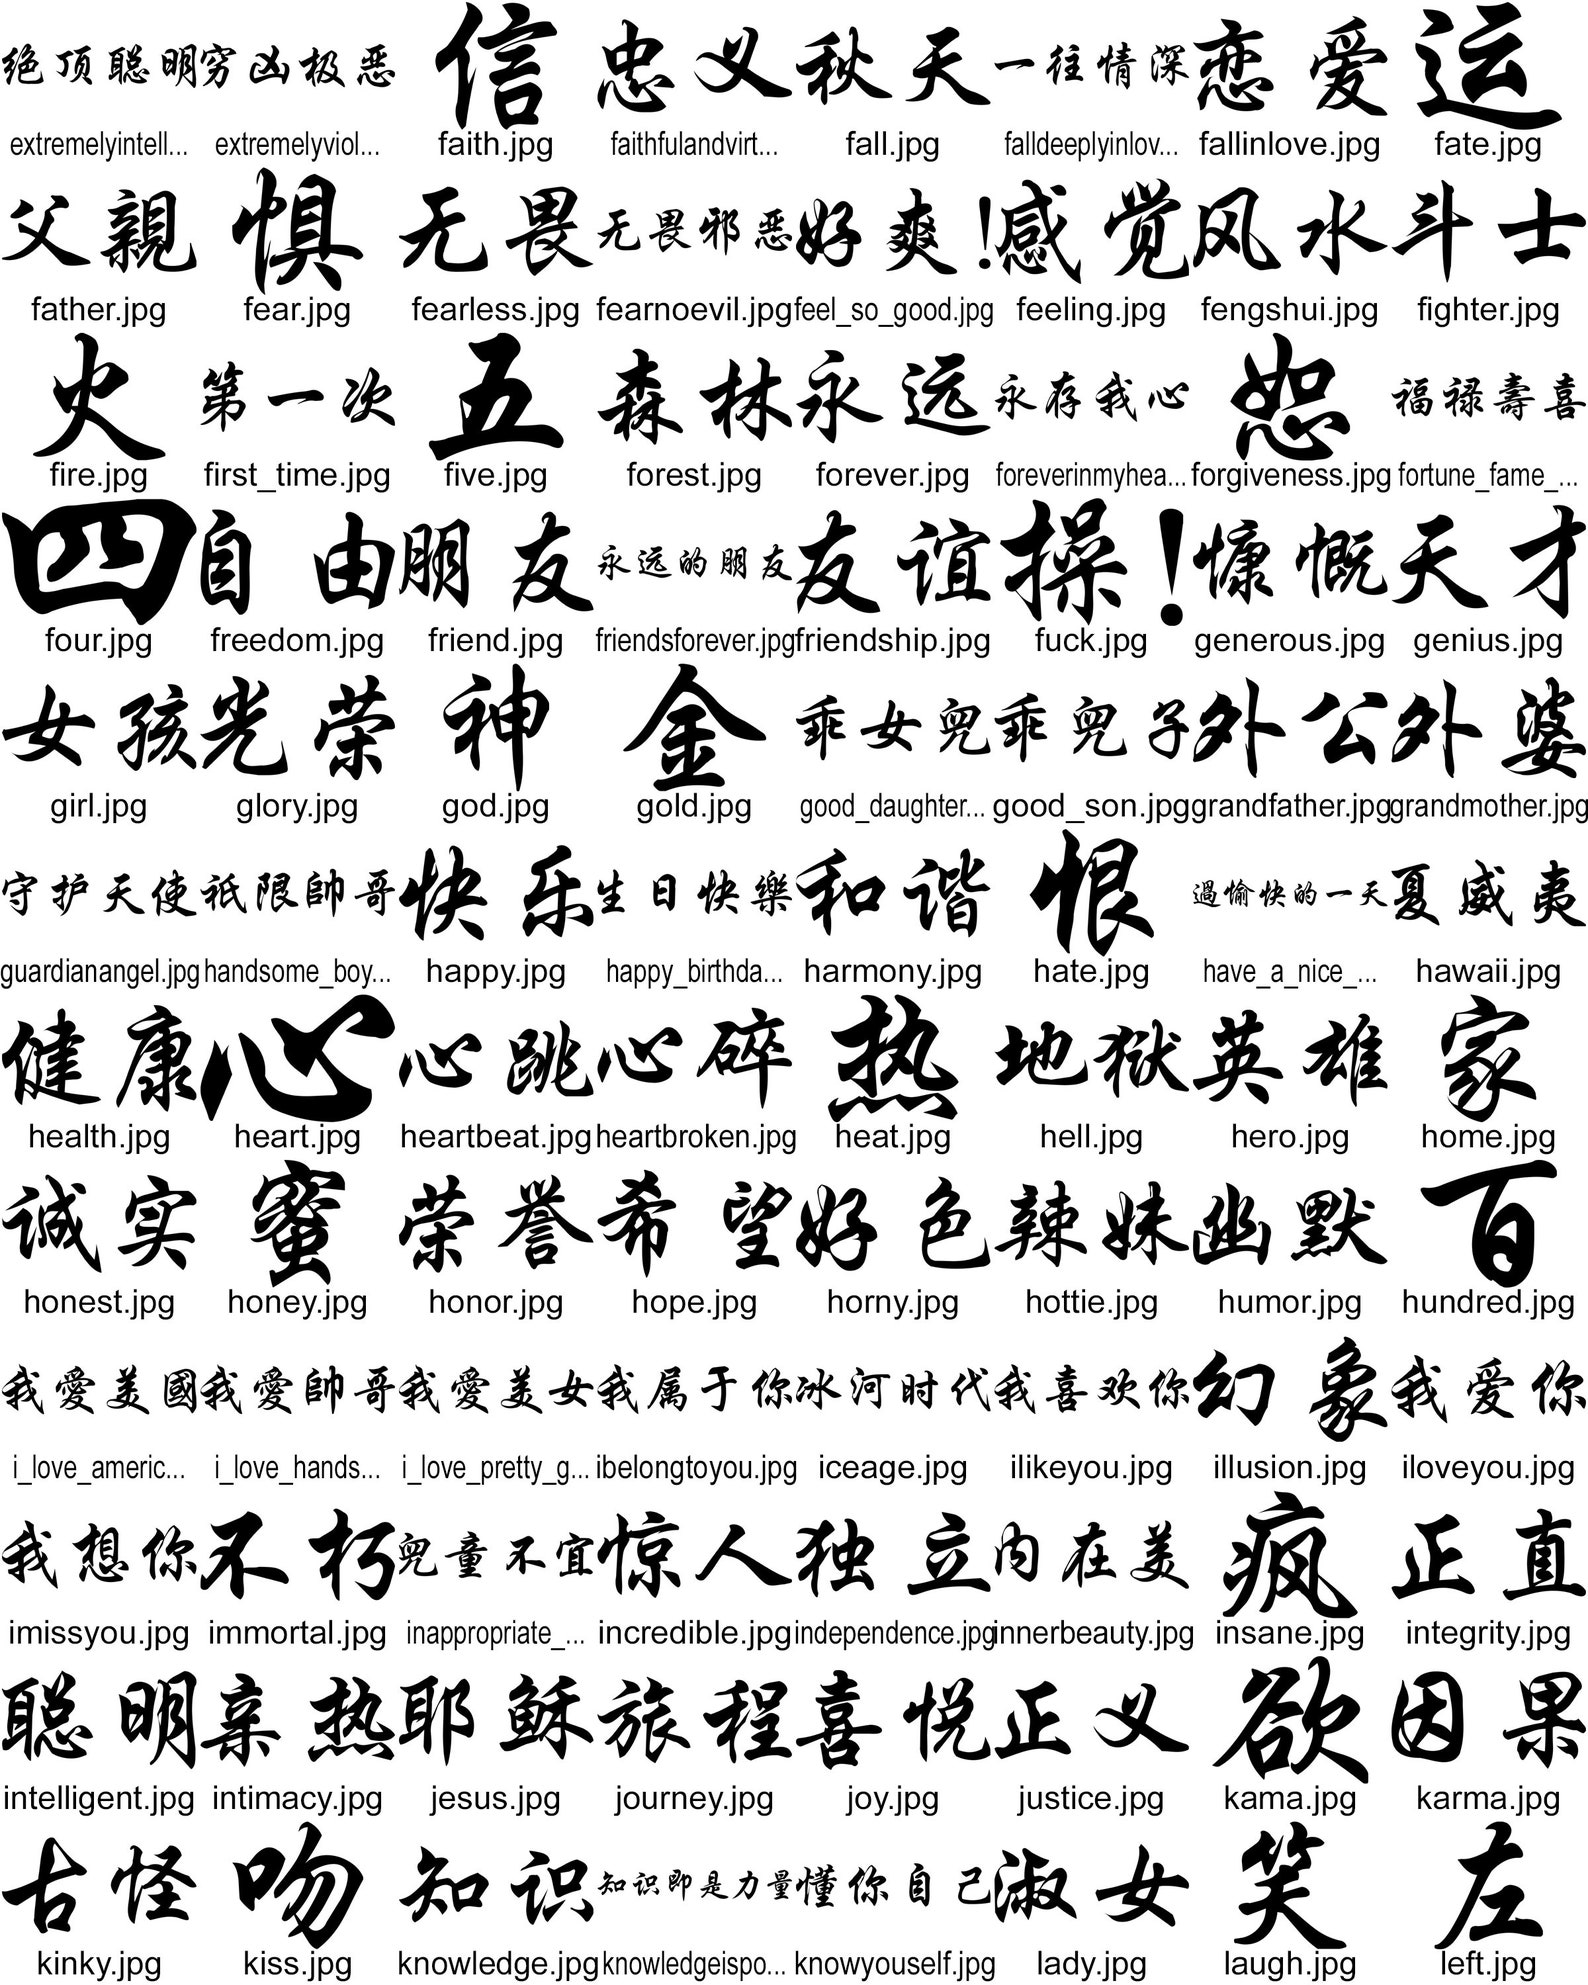 绝顶聪明 穷凶极恶 信 忠义 秋天 一往情深 恋爱 运
extremelyintell... extremelyviol... faith.jpg faithfulandvirt... fall.jpg falldeeplyinlov... fallinlove.jpg fate.jpg
父親 惧 无畏 无畏邪恶 好爽! 感觉 风水 斗士
father.jpg fear.jpg fearless.jpg fearnoevil.jpg feel_so_good.jpg feeling.jpg fengshui.jpg fighter.jpg
火 第一次 五 森林 永远 永存我心 恕 福禄壽喜
fire.jpg first_time.jpg five.jpg forest.jpg forever.jpg foreverinmyhea... forgiveness.jpg fortune_fame_...
四 自由 朋友 永远的朋友 友谊 操! 慷慨 天才
four.jpg freedom.jpg friend.jpg friendsforever.jpg friendship.jpg fuck.jpg generous.jpg genius.jpg
女孩 光荣 神 金 乖女兒 乖兒子 外公 外婆
girl.jpg glory.jpg god.jpg gold.jpg good_daughter... good_son.jpg grandfather.jpg grandmother.jpg
守护天使 祇限帥哥 快乐 生日快樂 和谐 恨 過愉快的一天 夏威夷
guardianangel.jpg handsome_boy... happy.jpg happy_birthda... harmony.jpg hate.jpg have_a_nice_... hawaii.jpg
健康 心 心跳 心碎 热 地狱 英雄 家
health.jpg heart.jpg heartbeat.jpg heartbroken.jpg heat.jpg hell.jpg hero.jpg home.jpg
诚实 蜜 荣誉 希望 好色 辣妹 幽默 百
honest.jpg honey.jpg honor.jpg hope.jpg horny.jpg hottie.jpg humor.jpg hundred.jpg
我愛美國 我愛帥哥 我愛美女 我属于你 冰河时代 我喜欢你 幻象 我爱你
i_love_americ... i_love_hands... i_love_pretty_g... ibelongtoyou.jpg iceage.jpg ilikeyou.jpg illusion.jpg iloveyou.jpg
我想你 不朽 兒童不宜 惊人 独立 内在美 疯 正直
imissyou.jpg immortal.jpg inappropriate_... incredible.jpg independence.jpg innerbeauty.jpg insane.jpg integrity.jpg
聪明 亲热 耶稣 旅程 喜悦 正义 欲 因果
intelligent.jpg intimacy.jpg jesus.jpg journey.jpg joy.jpg justice.jpg kama.jpg karma.jpg
古怪 吻 知识 知识即是力量 懂你自己 淑女 笑 左
kinky.jpg kiss.jpg knowledge.jpg knowledgeispo... knowyouself.jpg lady.jpg laugh.jpg left.jpg